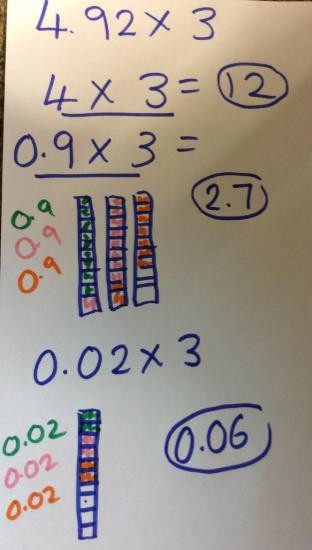 4.92 × 3
4 × 3 = 12
0.9 × 3 =
2.7
0.9
0.9
0.9
0.02 × 3
0.02
0.06
0.02
0.02